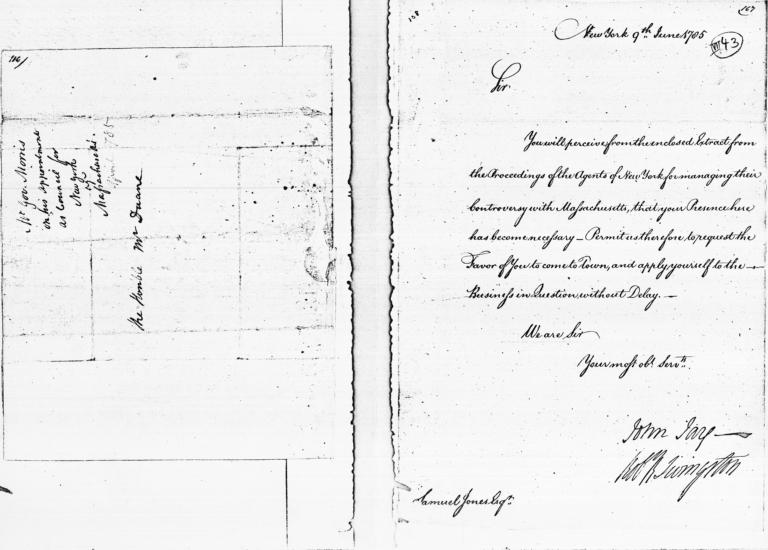 186
Mr Gov. Morris
on his appointment
as Council for
New York
vs
Massachusetts.
April 1785
The Honble Mr Duane
188
187
New York 9th June 1785
M43
Sir
You will perceive from the enclosed Extract from
the Proceedings of the Agents of New York for managing their
Controversy with Massachusetts, that your Presence here
has become necessary — Permit us therefore to request the
Favor of You to come to Town, and apply yourself to the —
Business in Question without Delay. —
We are Sir
Your most obt. Servts.
John Jay
Robt R Livingston
Samuel Jones Esqr.